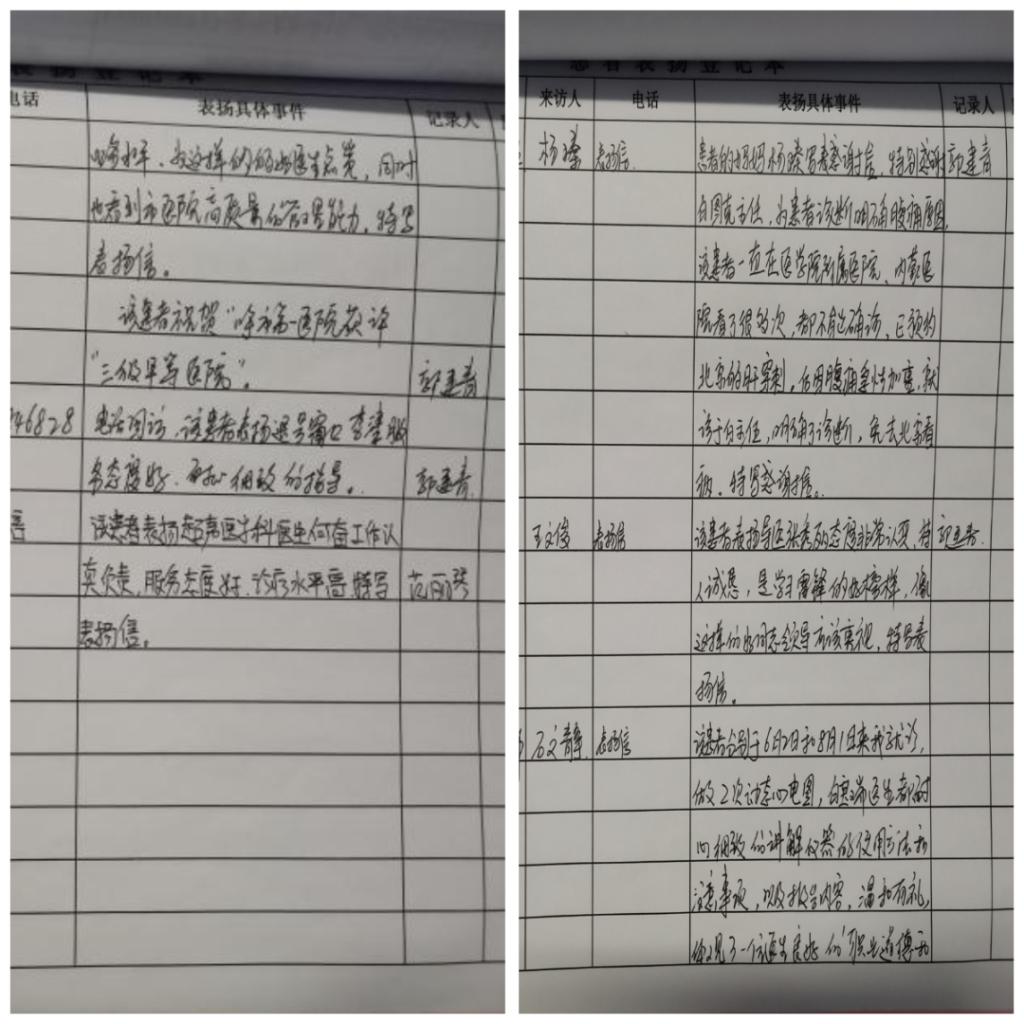 表扬登记本
电话 表扬具体事件 记录人
水平，为这样的好医生点赞，同时
也看到市医院高质量的管理能力，特写
表扬信。
该患者祝贺“呼市第一医院获评
“三级甲等医院”。 郭建青
46828 电话回访，该患者表扬退号窗口李 服
务态度好，耐心细致的指导。 郭建青
该患者表扬超声医学科医生何奋工作认
真负责，服务态度好，诊疗水平高，特写 范丽琴
表扬信。
患者表扬登记本
来访人 电话 表扬具体事件 记录人
杨 表扬信 患者的妈妈杨 写来感谢信，特别感谢 郭建青
白图克主任，为患者诊断明确腹痛原因，
该患者一直在医学院附属医院、内蒙医
院看了很多次，都不能确诊，已预约
北京的肝穿刺，后因腹痛症状加重，就
诊于白主任，明确了诊断，免去北京看
病。特写感谢信。
王文俊 表扬信 该患者表扬导医张秀 态度非常认真，待 郭建青
人诚恳，是学习雷锋的好榜样，像
这样的好同志领导应该重视，特写表
扬信。
石文静 表扬信 该患者分别于6月2日和8月1日来我 就诊，
做2次动态心电图，白 瑞医生都耐
心细致的讲解仪器的使用方法和
注意事项，以及报告内容，温和有礼，
体现了一位医生良好的职业道德和